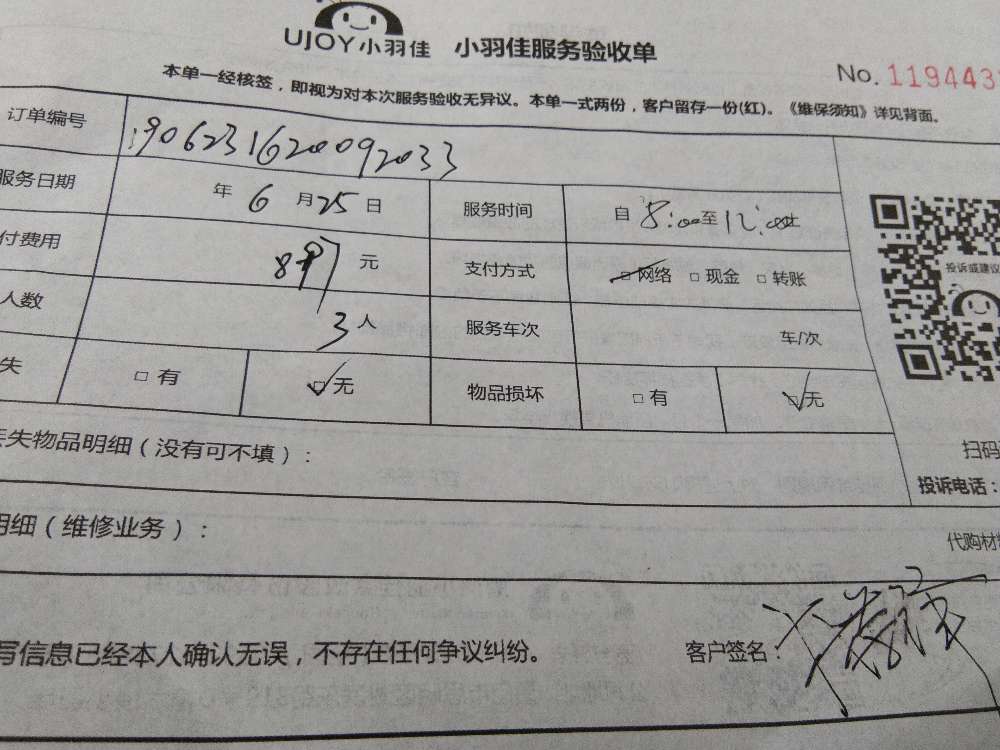 UJOY小羽佳 小羽佳服务验收单
No. 119443
本单一经核签，即视为对本次服务验收无异议。本单一式两份，客户留存一份(红)。《维保须知》详见背面。
订单编号 190623162009 2033
服务日期 年 6 月 25 日 服务时间 自 8:00 至 12:00
付费用 元 支付方式 □ 网络 □ 现金 □ 转账
投诉或建议
人数 3 人 服务车次 车/次
失 □ 有 □ 无 物品损坏 □ 有 □ 无
丢失物品明细（没有可不填）：
扫码
投诉电话：
明细（维修业务）：
代购材
写信息已经本人确认无误，不存在任何争议纠纷。 客户签名：